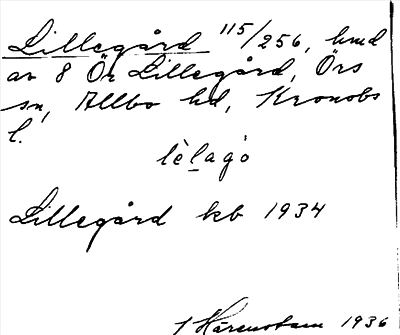 Lillegård 115/256, hmd
av 8 Ör Lillegård, Örs
sn, Allbo hd, Kronobs
l.
lè̀lagò
Lillegård kb 1934
1936